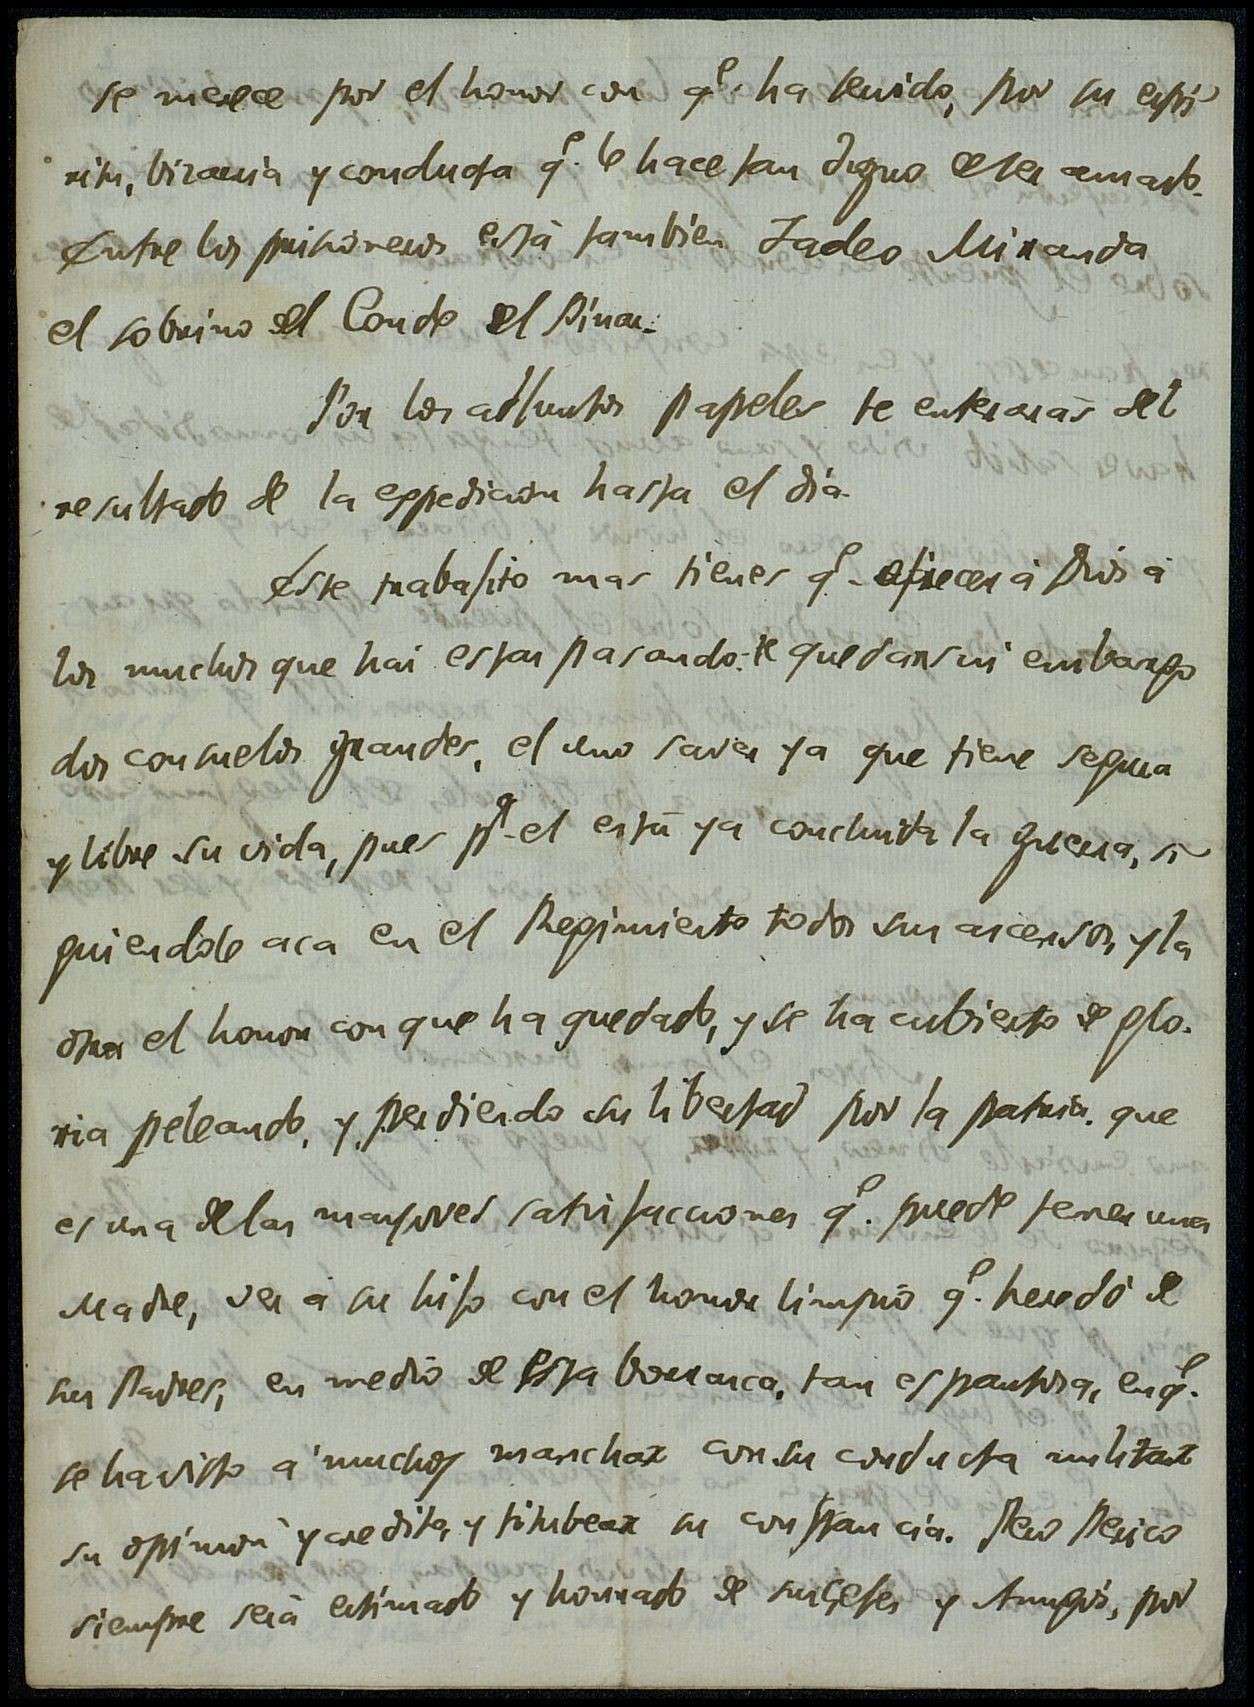 se merece por el honor con qe. ha servido, por su espi
ritu, bizarria y conducta qe. le hace tan digno de ser amado.
Entre los prisioneros está tambien Tadeo Miranda
el sobrino del Conde del Pinar.
Por los adjuntos papeles te enterarás del
resultado de la espedicion hasta el dia.
Este trabajito mas tienes qe. ofrecer á Dios á
los muchos que hai estan pasando: te quedan sin embargo
dos consuelos grandes, el uno saver ya que tiene segura
y libre su vida, pues pa. el está ya concluida la guerra, si
guiendole aca en el Regimiento todos sus ascensos, y la
otra el honor con que ha quedado, y se ha cubierto de glo-
ria peleando, y perdiendo su libertad por la patria. que
es una de las mayores satisfacciones qe. puede tener una
Madre, ver á su hijo con el honor limpio qe. heredó de
sus Padres, en medio de esta borrasca, tan espantosa, en qe.
se ha visto á muchos manchar con su conducta militar
su opinion y credito, y titubear su constancia. Pero Perico
siempre será estimado y honrado de sus Gefes y Amigos, por